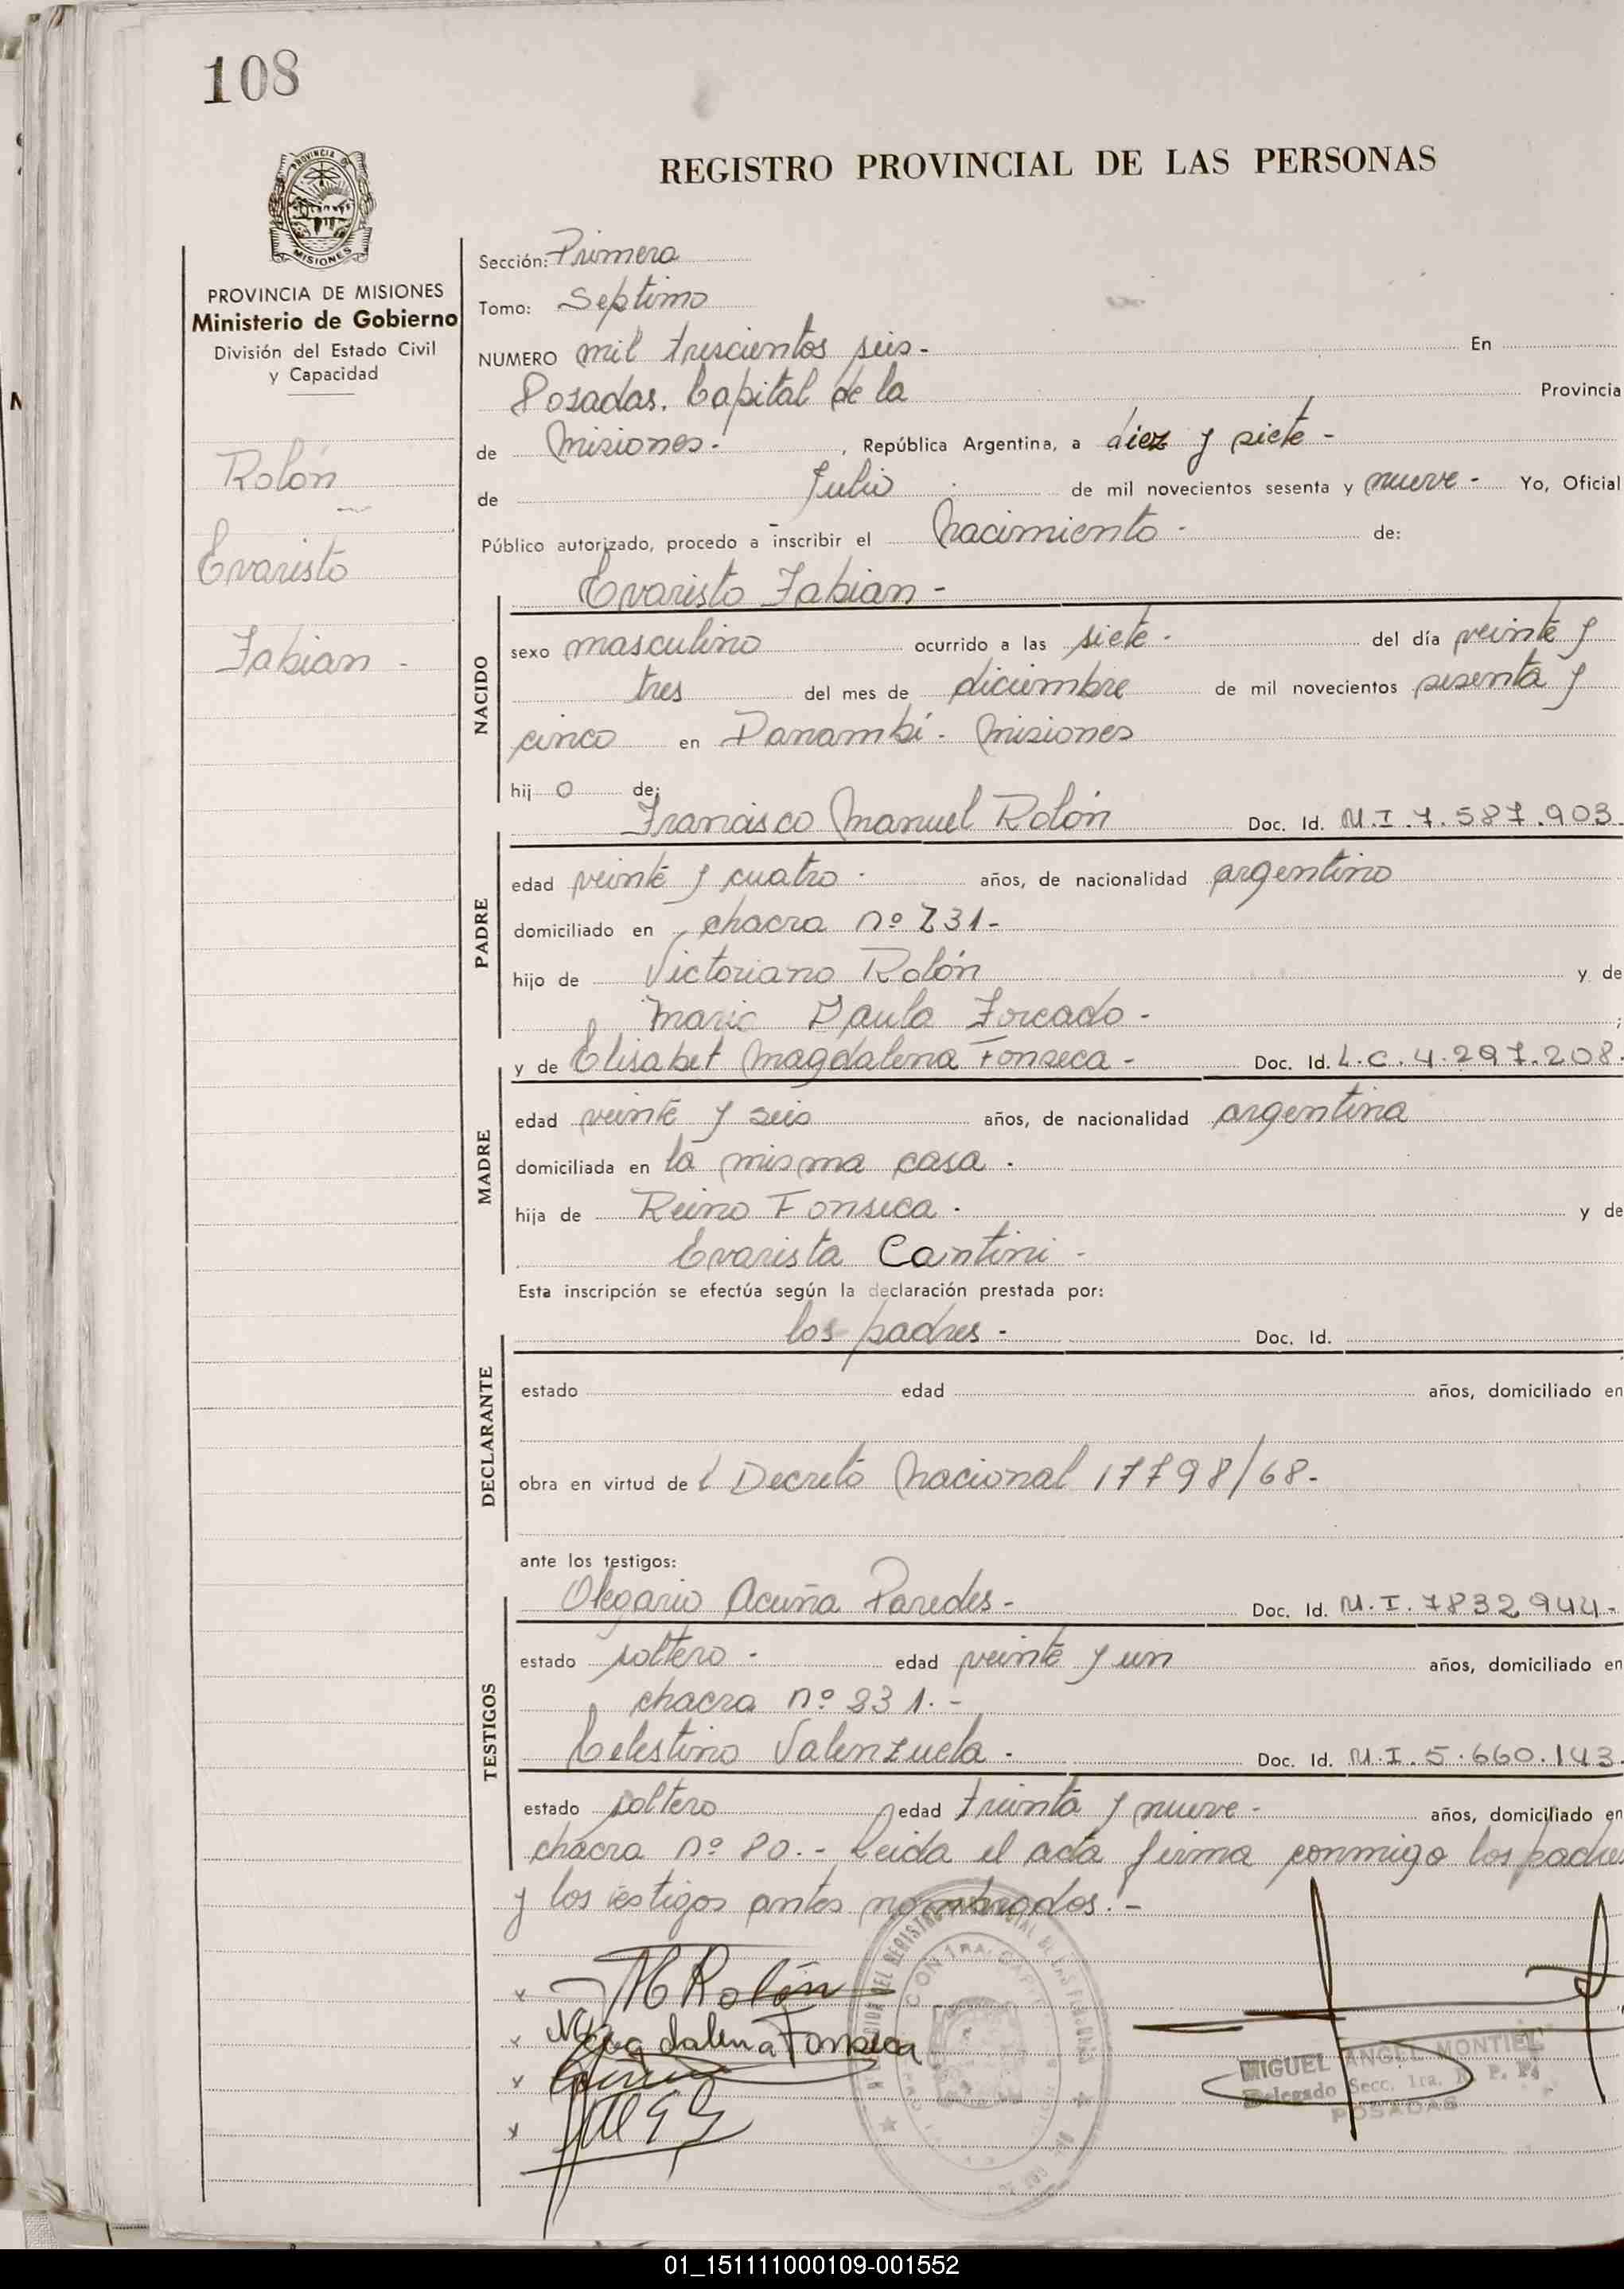 108
PROVINCIA DE
MISIONES
PROVINCIA DE MISIONES
Ministerio de Gobierno
División del Estado Civil
y Capacidad
Rolón
Evaristo
Fabian -
REGISTRO PROVINCIAL DE LAS PERSONAS
Sección: Primera
Tomo: Septimo
NUMERO mil trescientos seis - En
Posadas. Capital de la Provincia
de Misiones - , República Argentina, a diez y siete -
de Julio de mil novecientos sesenta y nueve - Yo, Oficial
Público autorizado, procedo a inscribir el Nacimiento - de:
Evaristo Fabian -
NACIDO
sexo masculino ocurrido a las siete - del día veinte y
tres del mes de diciembre de mil novecientos sesenta y
cinco en Panambí - Misiones
hijo de:
Francisco Manuel Rolón Doc. Id. M.I.7.587.903
PADRE
edad veinte y cuatro - años, de nacionalidad argentino
domiciliado en chacra nº 231 -
hijo de Victoriano Rolón y de
Maria Paula Forcado - ;
y de Elisabet Magdalena Fonseca - Doc. Id. L.C.4.297.208.
MADRE
edad veinte y seis años, de nacionalidad argentina
domiciliada en la misma casa .
hija de Reino Fonseca . y de
Evarista Cantini -
Esta inscripción se efectúa según la declaración prestada por:
los padres - Doc. Id.
DECLARANTE
estado edad años, domiciliado en
obra en virtud del Decreto Nacional 17798/68 -
ante los testigos:
TESTIGOS
Olegario Acuña Paredes - Doc. Id. M.I.7832944 -
estado soltero - edad veinte y un años, domiciliado en
chacra nº 231. -
Celestino Valenzuela - Doc. Id. M.I.5.660.143.
estado soltero edad treinta y nueve - años, domiciliado en
chacra nº 80. - Leida el acta firma conmigo los padres
y los testigos antes nombrados. -
x M Rolón
x Magdalena Fonseca
x
x
MIGUEL ANGEL MONTIEL
Delegado Secc. 1ra. R. P. P.
POSADAS
01_151111000109-001552